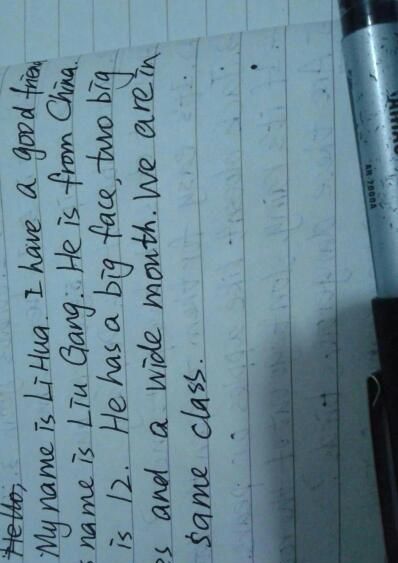 Hello,
My name is Li Hua. I have a good friend
name is Liu Gang. He is from China.
is 12. He has a big face, two big
and a wide month. We are in
same class.
AH 2000A